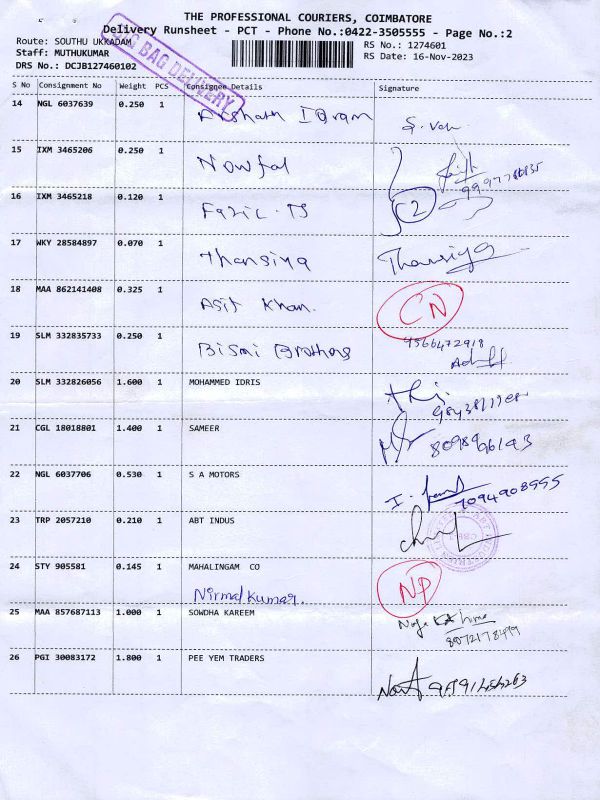 THE PROFESSIONAL COURIERS, COIMBATORE
Delivery Runsheet - PCT - Phone No.:0422-3505555 - Page No.:2
Route: SOUTHU UKKADAM
Staff: MUTHUKUMAR
DRS No.: DCJB127460102
RS No.: 1274601
RS Date: 16-Nov-2023
BAG DELIVERY
S No Consignment No Weight PCS Consignee Details Signature
14 NGL 6037639 0.250 1 Arshath Iqram
15 IXM 3465206 0.250 1 Nowfal
16 IXM 3465218 0.120 1 Fazil. TS
17 WKY 28584897 0.070 1 Thansiya Thansiya
18 MAA 862141408 0.325 1 Asif Khan. CN
19 SLM 332835733 0.250 1 Bismi Brothers 9566472918
20 SLM 332826056 1.600 1 MOHAMMED IDRIS
21 CGL 18018801 1.400 1 SAMEER 8098996193
22 NGL 6037706 0.530 1 S A MOTORS 7094908555
23 TRP 2057210 0.210 1 ABT INDUS
24 STY 905581 0.145 1 MAHALINGAM CO NP
Nirmal kumar.
25 MAA 857687113 1.000 1 SOWDHA KAREEM
8072178499
26 PGI 30083172 1.800 1 PEE YEM TRADERS